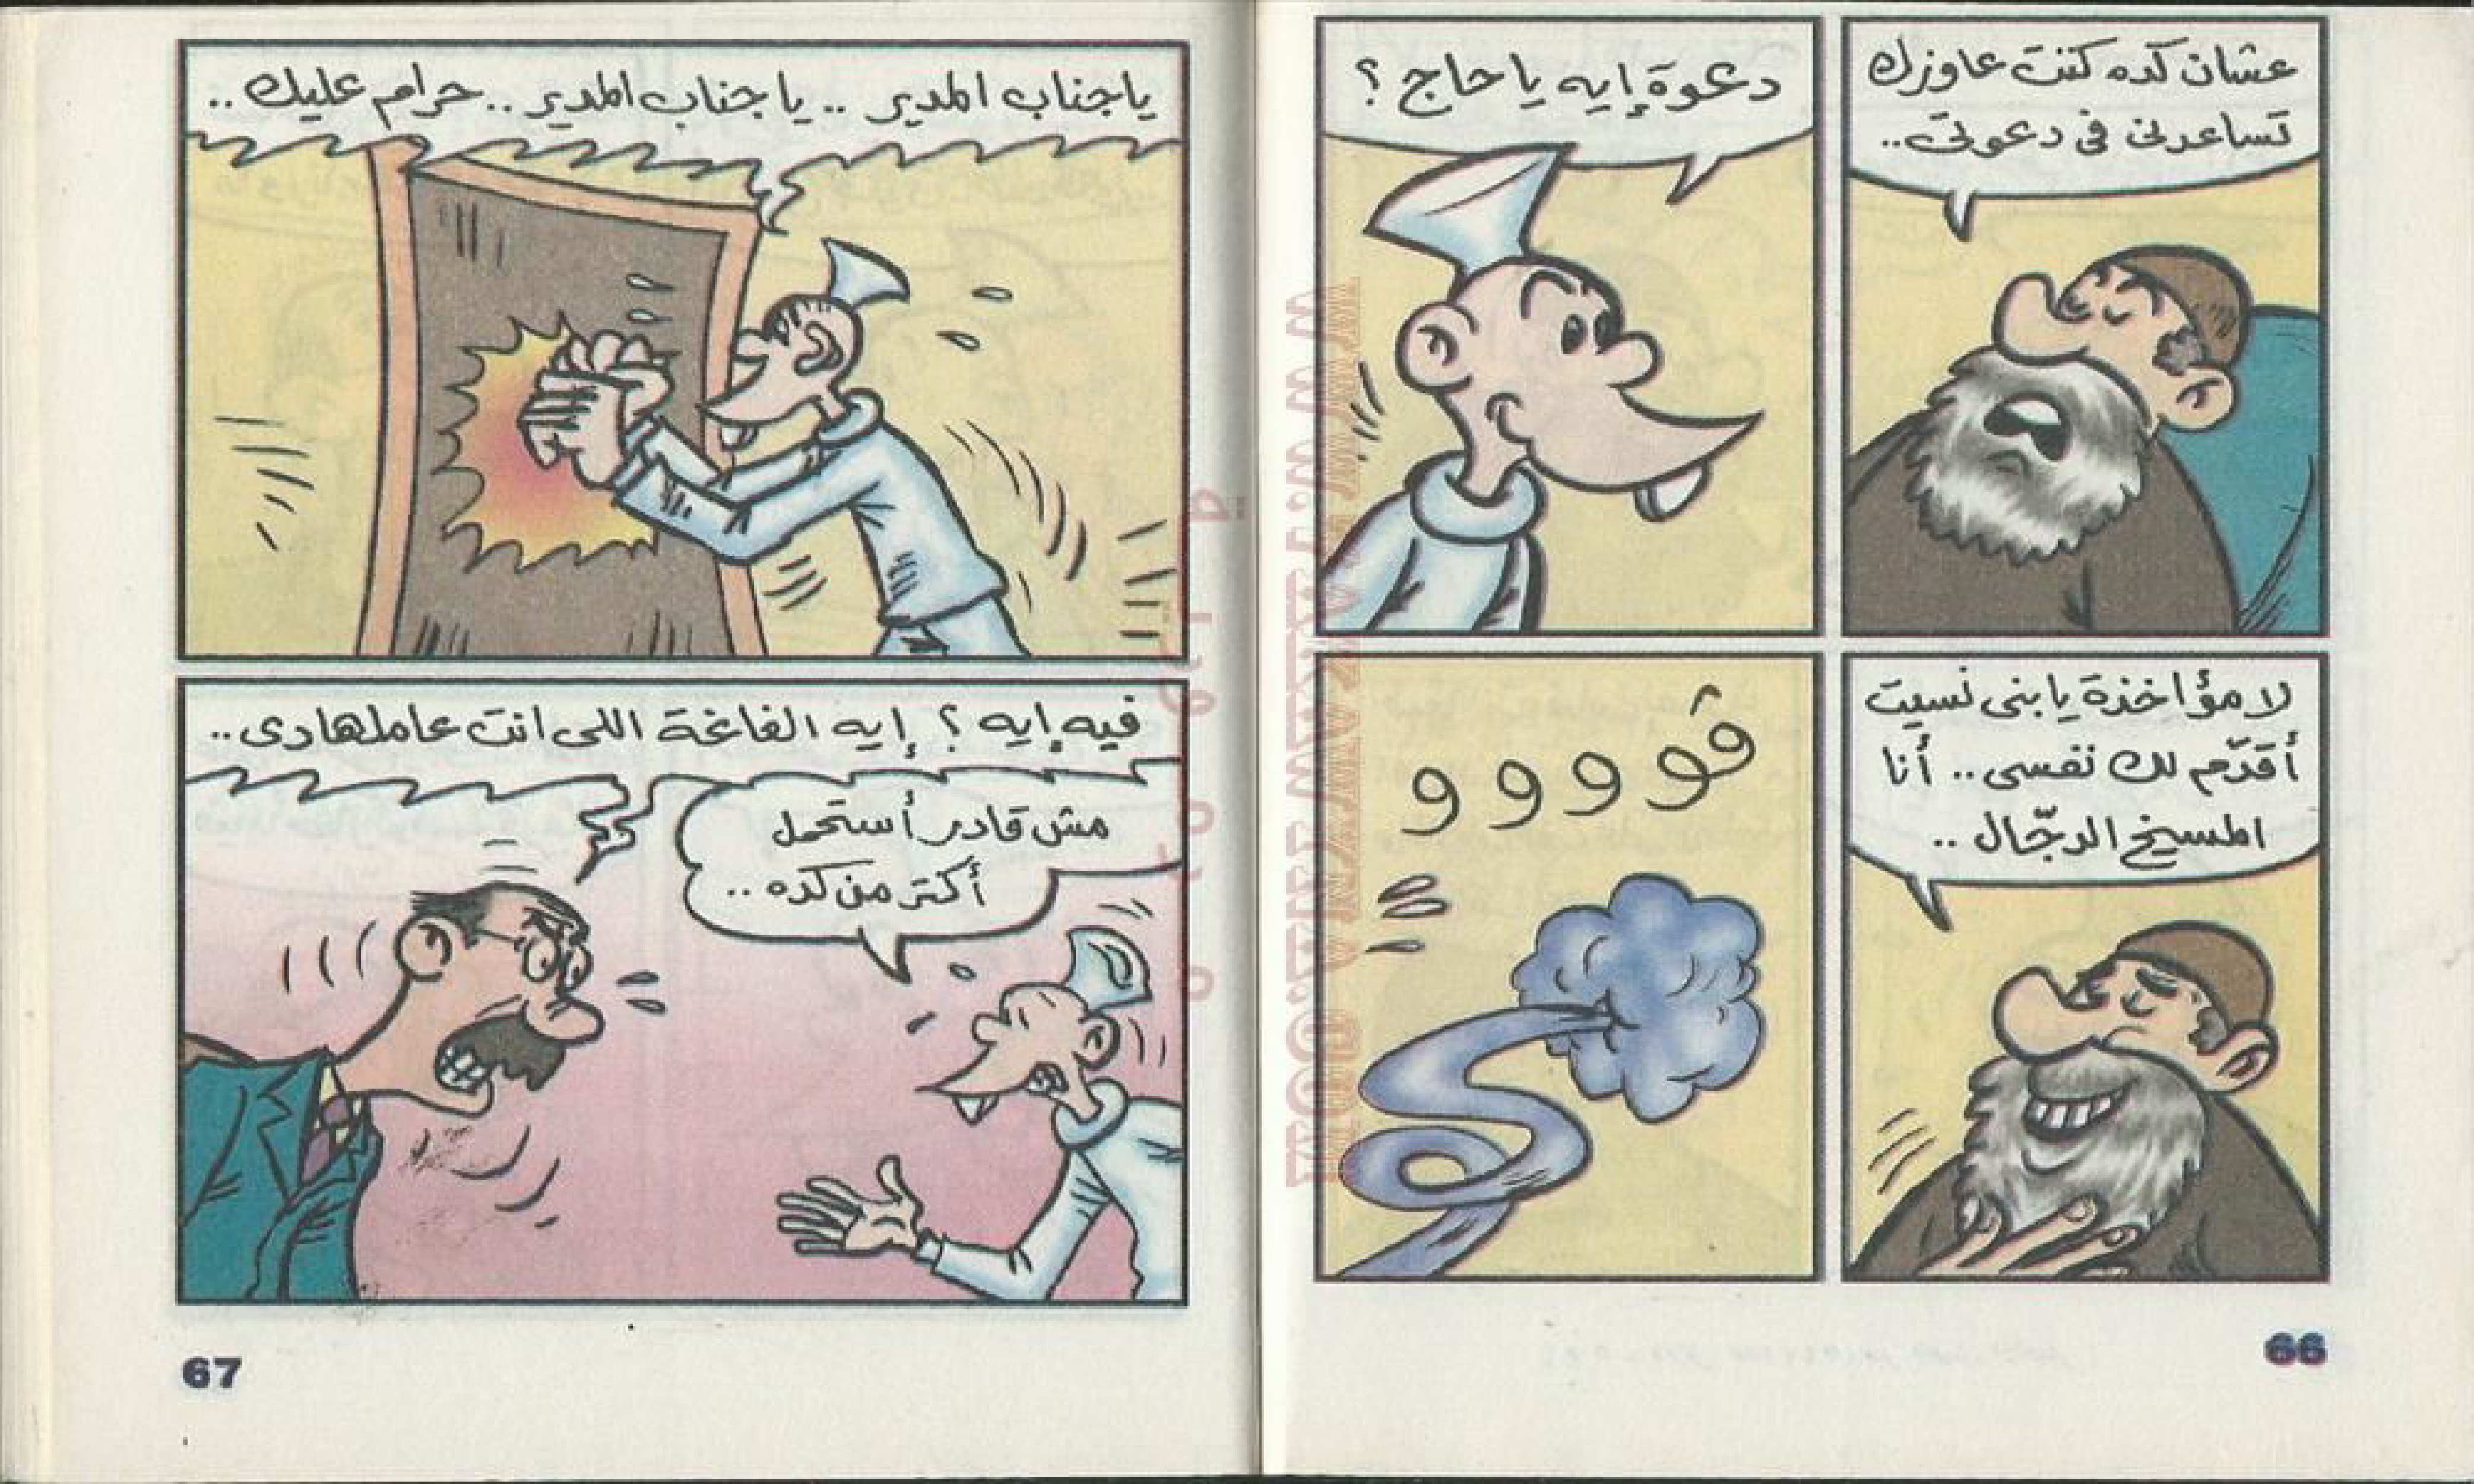 عشان كده كنت عاوزك
تساعدنى فى دعوتى..
دعوة إيه يا حاج ؟
لا مؤاخذة يا بنى نسيت
أقدّم لك نفسى .. أنا
المسيخ الدجّال ..
ڤووووو
66
ياجناب المدير .. يا جناب المدير .. حرام عليك ..
فيه إيه ؟ إيه الفاغة اللى انت عاملها دى ..
مش قادر أستحمل
أكتر من كده ..
67